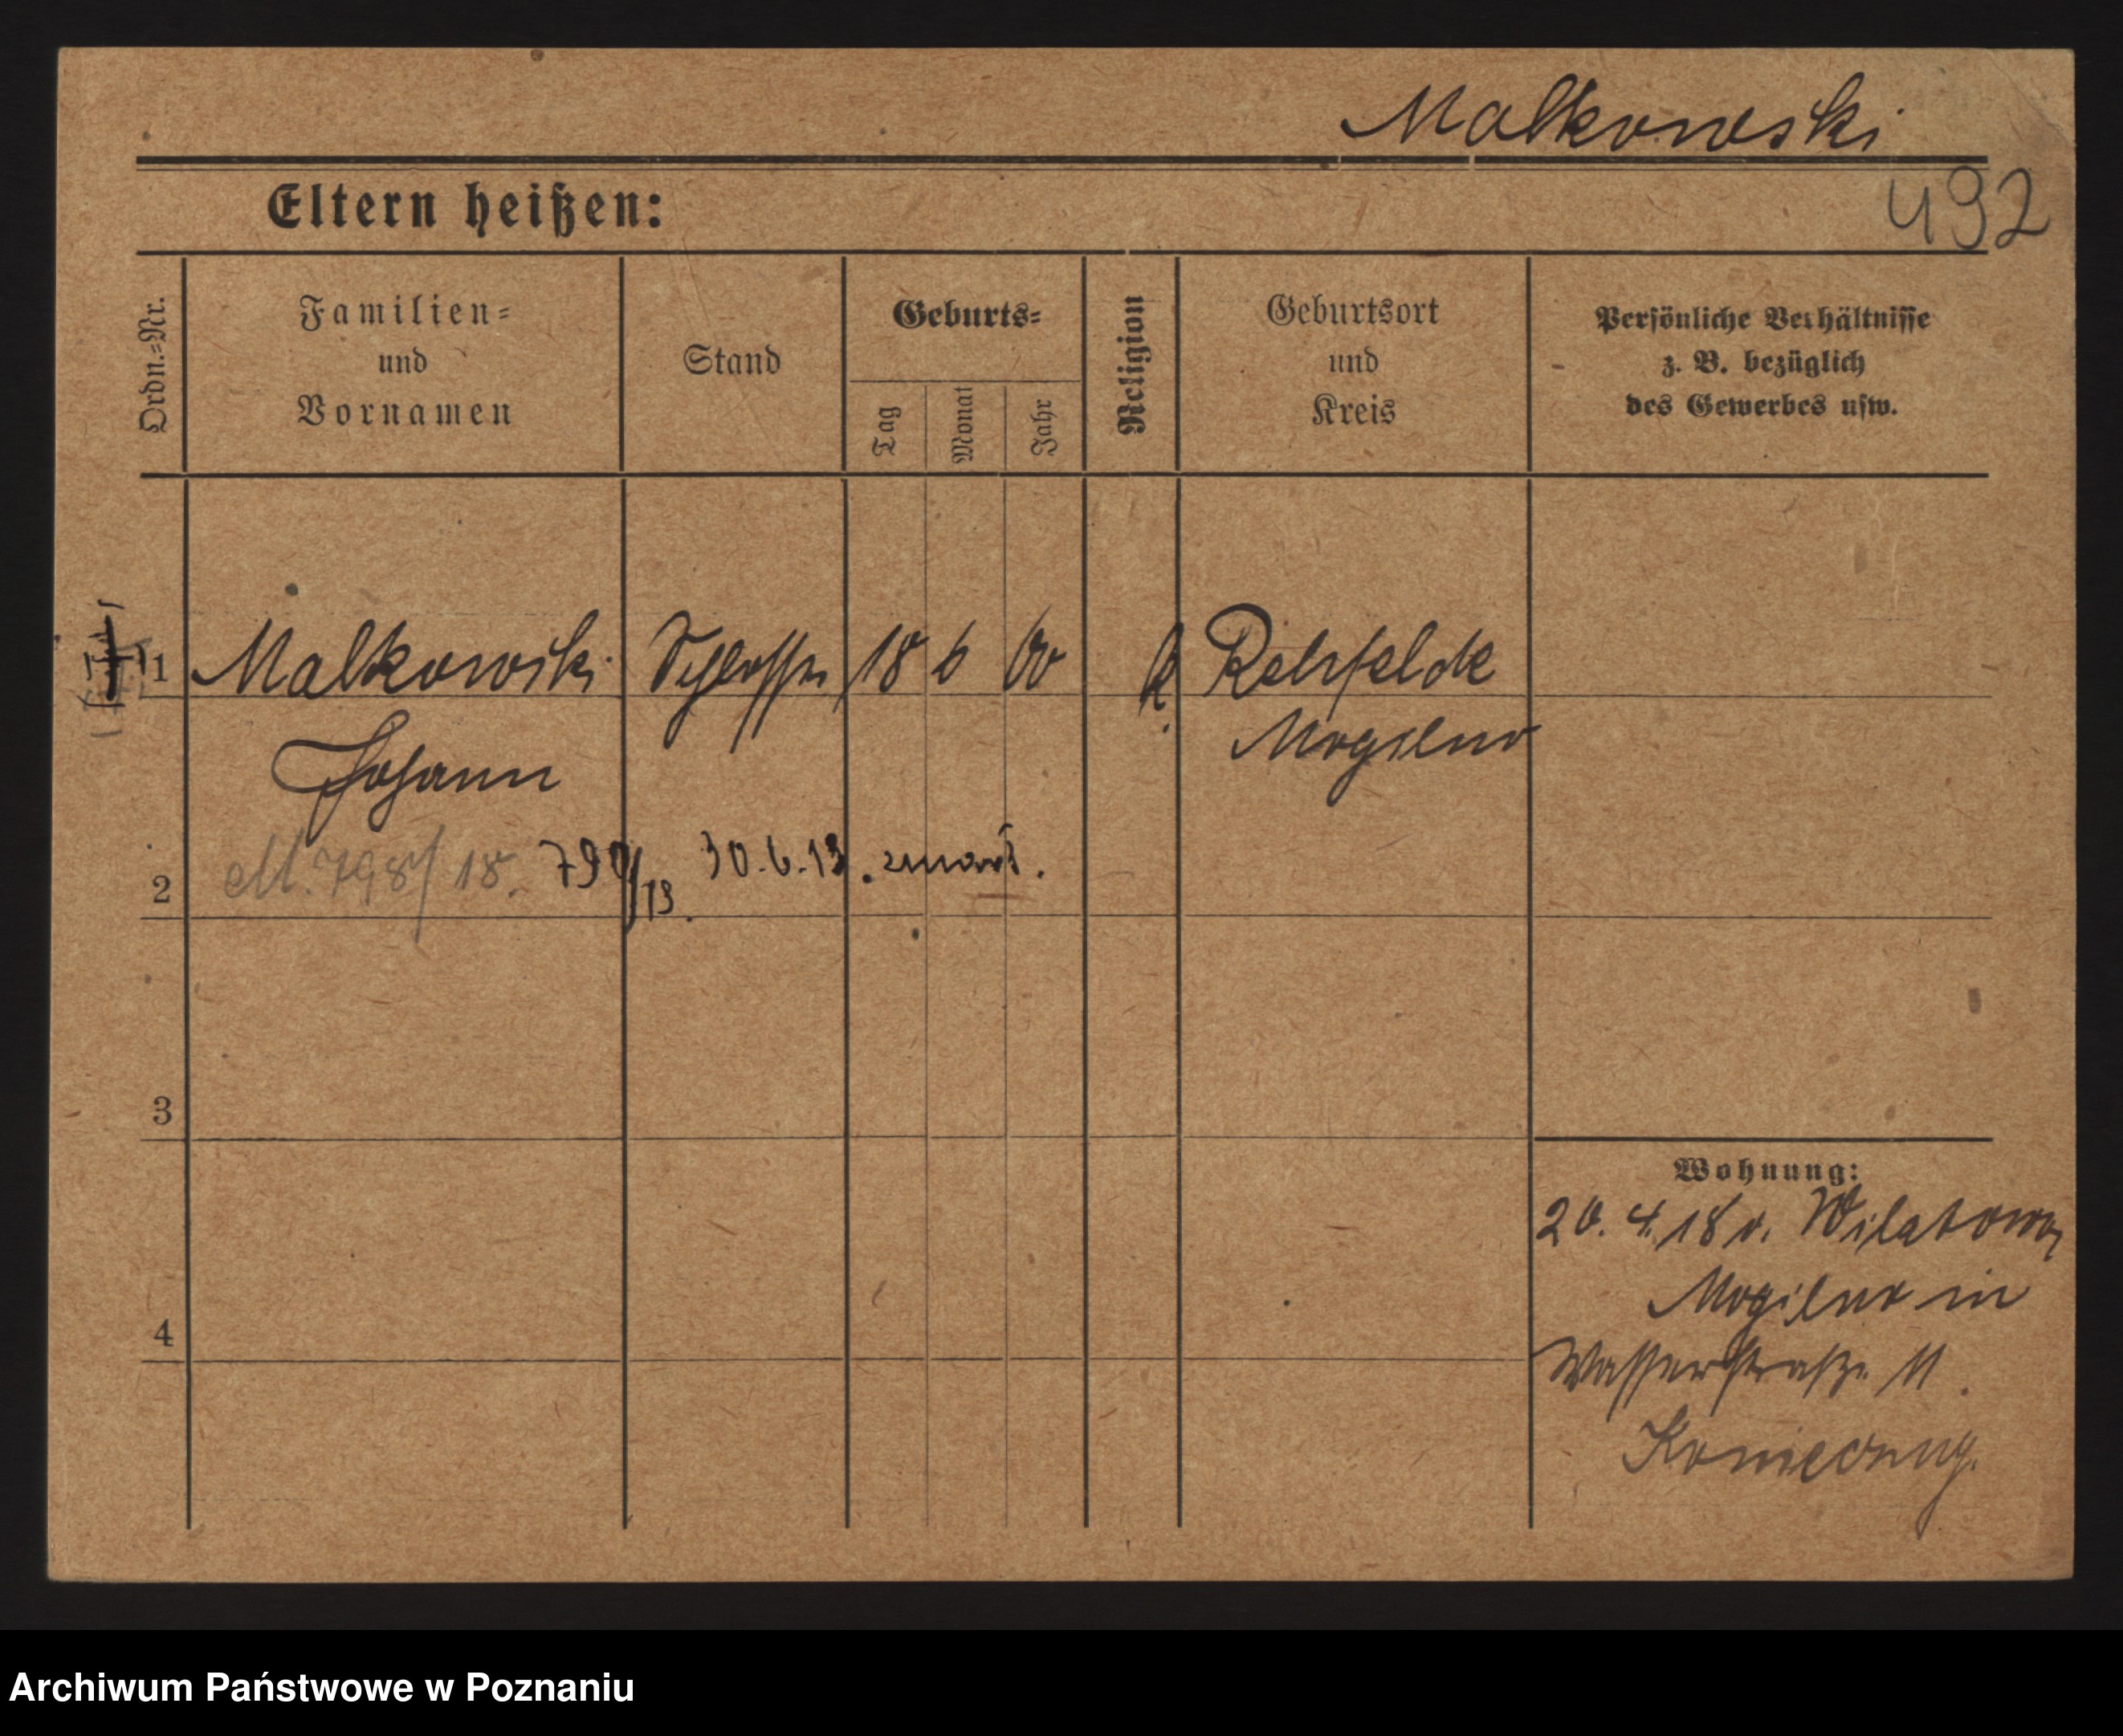 Malkowski
492
Eltern heißen:
Ordn.=Nr.
Familien=
und
Vornamen
Stand
Geburts=
Tag
Monat
Jahr
Religion
Geburtsort
und
Kreis
Persönliche Verhältnisse
z. B. bezüglich
des Gewerbes usw.
1 Malkowski Schlosser 18 6 00 k. Rehfelde
Johann Mogilno
2 M. 798/18. 30.6.13. zmarł.
3
Wohnung:
20. 4. 18 v. Wilatowo,
Mogilno in
4
Wasserstraße 11.
Konieczny.
Archiwum Państwowe w Poznaniu